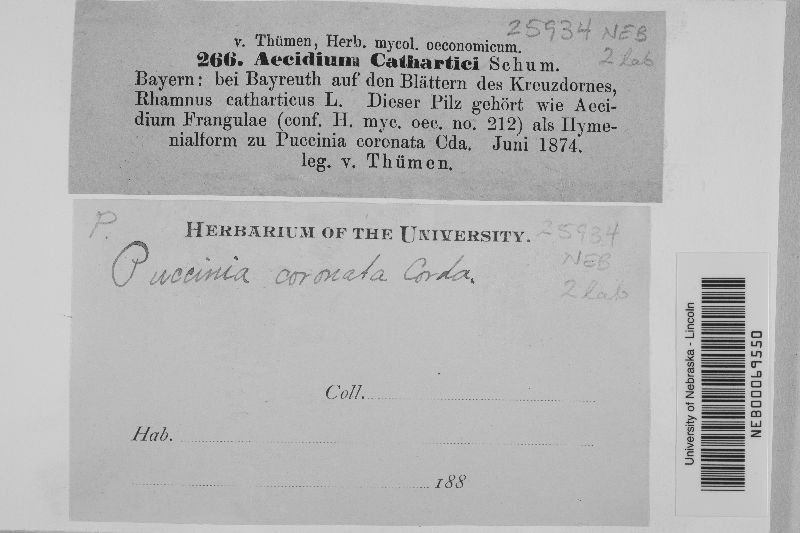 25934 NEB
2 lab
v. Thümen, Herb. mycol. oeconomicum.
266. Aecidium Cathartici Schum.
Bayern: bei Bayreuth auf den Blättern des Kreuzdornes,
Rhamnus catharticus L. Dieser Pilz gehört wie Aeci-
dium Frangulae (conf. H. myc. oec. no. 212) als Hyme-
nialform zu Puccinia coronata Cda. Juni 1874.
leg. v. Thümen.
P.
HERBARIUM OF THE UNIVERSITY.
25934
NEB
2 lab
Puccinia coronata Corda.
Coll.
Hab.
188
University of Nebraska - Lincoln
NEB00069550